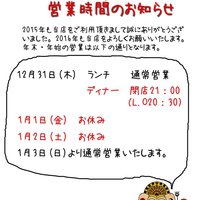 営業時間のお知らせ
2015年も当店をご利用頂きまして誠にありがとうござ
いました。2016年も当店をよろしくお願いいたします。
年末・年始の営業は以下の通りとなります。
12月31日(木) ランチ 通常営業
ディナー 閉店21:00
(L.O20:30)
1月1日(金) お休み
1月2日(土) お休み
1月3日(日)より通常営業いたします。